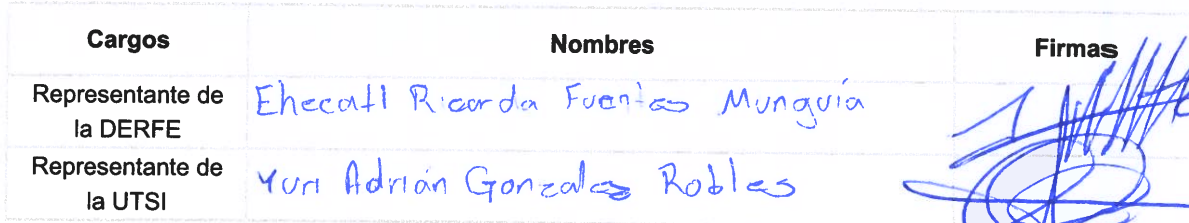 Cargos Nombres Firmas
Representante de
la DERFE
Ehecatl Ricarda Fuentes Munguía
Representante de
la UTSI
Yuri Adrián Gonzales Robles